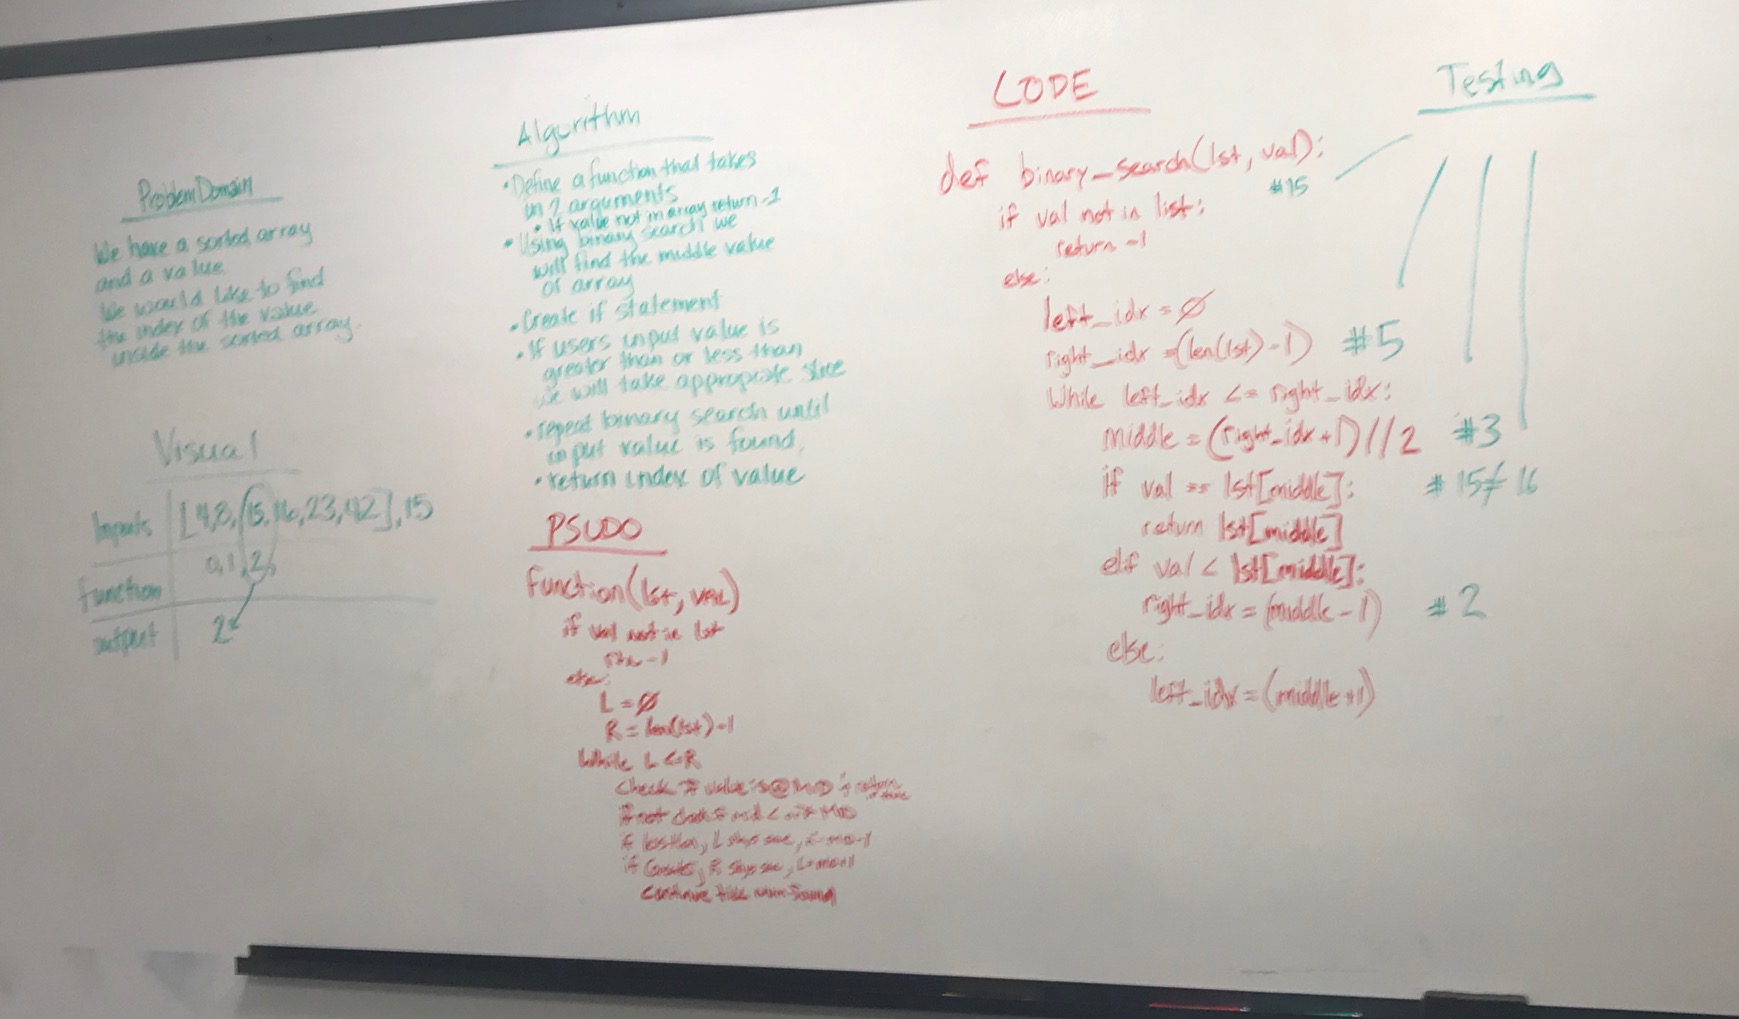 Problem Domain
We have a sorted array
and a value
We would like to find
the index of the value
inside the sorted array.
Visual
Inputs [4,8,15,16,23,42],15
0,1,2,
function
output 2
Algorithm
• Define a function that takes
in 2 arguments
• If value not in array return -1
• Using binary search we
will find the middle value
of array
• Create if statement
• If users input value is
greater than or less than
we will take appropriate slice
• repeat binary search until
input value is found.
• return index of value
PSUDO
function(lst, val)
if val not in lst
-1
else:
L = Ø
R = len(lst)-1
While L <= R
Check if value is @ MID
if less than, L
if R
continue till found
CODE
def binary_search(lst, val):
#15
if val not in list:
return -1
else:
left_idx = Ø
right_idx = (len(lst)-1) #5
While left_idx <= right_idx:
middle = (right_idx+1)//2 #3
if val == lst[middle]: # 15≠16
return lst[middle]
elif val < lst[middle]:
right_idx = (middle-1) #2
else:
left_idx = (middle+1)
Testing